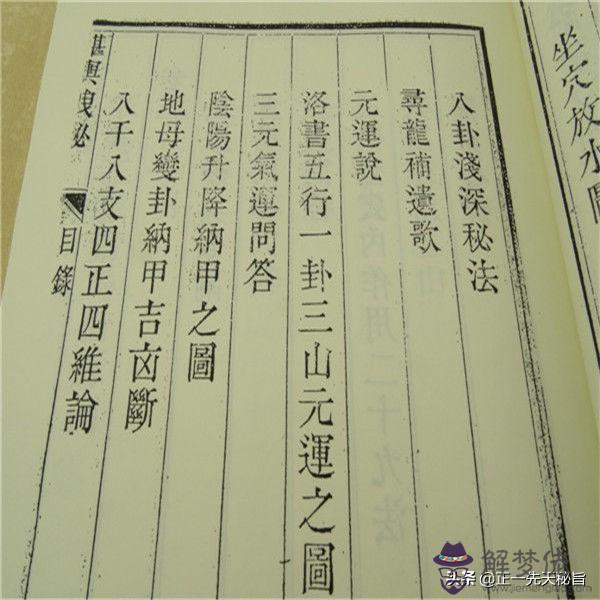 坐穴放水圖
八卦淺深秘法
尋龍補遺歌
元運說
洛書五行一卦三山元運之圖
三元氣運問答
陰陽升降納甲之圖
地母變卦納甲吉㐫斷
八干八支四正四維論
堪輿洩秘
目錄
解梦佬
头条 @正一先天秘旨